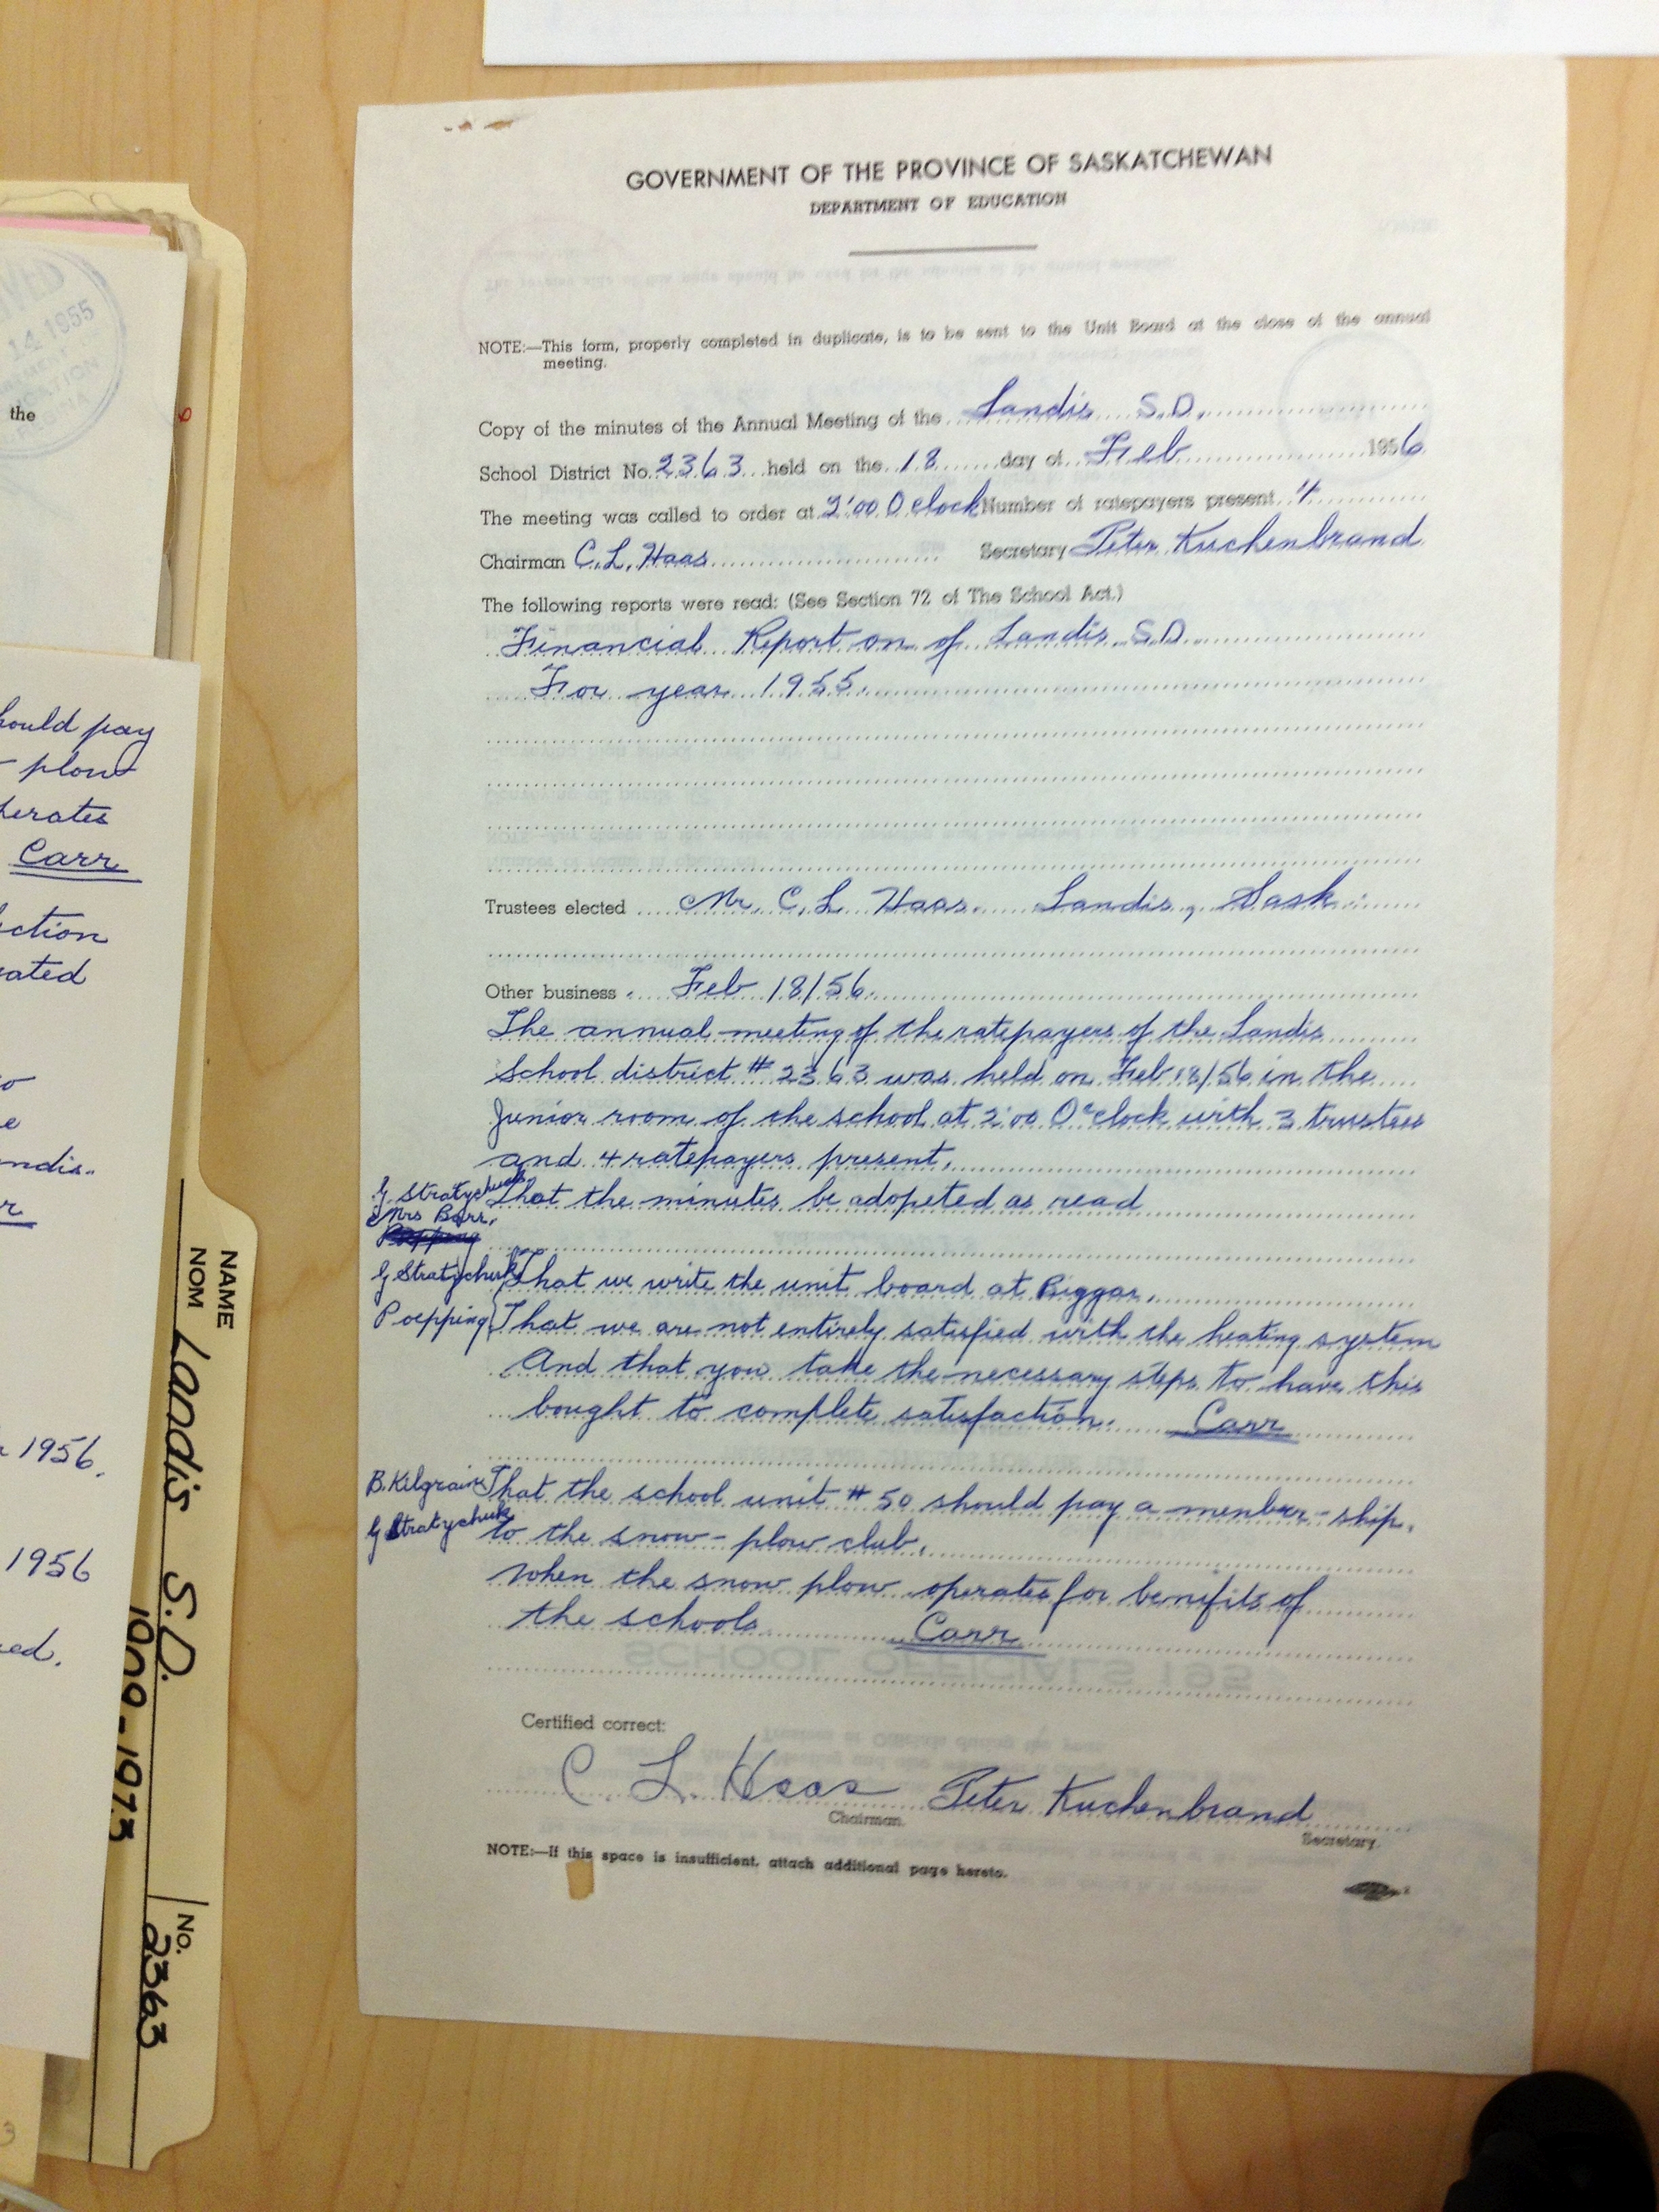 GOVERNMENT OF THE PROVINCE OF SASKATCHEWAN
DEPARTMENT OF EDUCATION
NOTE:—This form, properly completed in duplicate, is to be sent to the Unit Board at the close of the annual
meeting.
Copy of the minutes of the Annual Meeting of the Landis S.D.
School District No. 2363 held on the 18 day of Feb 1956
The meeting was called to order at 2:00 O clock Number of ratepayers present 4
Chairman C. L. Haas Secretary Peter Kuchenbrand
The following reports were read: (See Section 72 of The School Act.)
Financial Report on of Landis S.D.
For year 1955.
Trustees elected Mr. C. L Haas. Landis, Sask.
Other business. Feb 18/56.
The annual meeting of the ratepayers of the Landis
School district # 2363 was held on Feb 18/56 in the
Junior room of the school at 2:00 O'clock with 3 trustees
and 4 ratepayers present.
G. Stratychuk That the minutes be adopeted as read
Mrs Barr.
G Stratychuk That we write the unit board at Biggar.
Poepping That we are not entirely satisfied with the heating system
And that you take the necessary steps to have this
bought to complete satisfaction. Carr
B. Kilgrain That the school unit # 50 should pay a member-ship.
G Stratychuk to the snow-plow club.
When the snow plow operates for benefits of
the schools Carr
Certified correct:
C. L. Haas Peter Kuchenbrand
Chairman. Secretary.
NOTE:—If this space is insufficient, attach additional page hereto.
14 1955
the
hould pay
plow
perates
Carr
ction
ated
ndis.
1956.
1956
ed.
NAME
NOM Landis S.D.
1000-1973
No. 2363